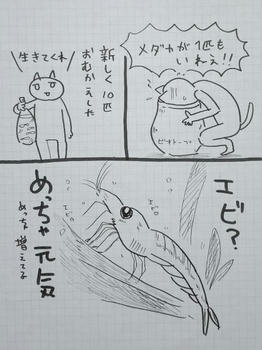 メダカが1匹も
いねえ!!
ビオトープ
新しく10匹
おむかえしや
生きてくれ
エビ?
エビロ
エビロ
めっちゃ元気
めっちゃ増えてる